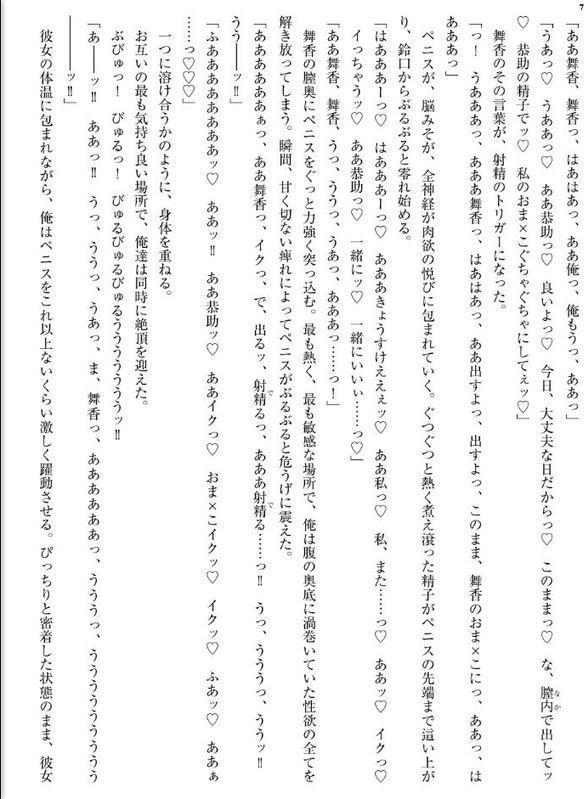 7
「ああ舞香、舞香っ、はあはあっ、ああ俺っ、俺もうっ、ああっ」
「うあっ♡　うああっ♡　ああ恭助っ♡　良いよっ♡　今日、大丈夫な日だからっ♡　このままっ♡　な、膣内で出してッ
♡　恭助の精子でッ♡　私のおま×こぐちゃぐちゃにしてぇッ♡」
　舞香のその言葉が、射精のトリガーになった。
「っ！　うああああっ、あああ舞香っ、はあはあっ、ああ出すよっ、出すよっ、このまま、舞香のおま×こにっ、ああっ、は
あああっ」
　ペニスが、脳みそが、全神経が肉欲の悦びに包まれていく。ぐつぐつと熱く煮え滾った精子がペニスの先端まで這い上が
り、鈴口からぶるぶると零れ始める。
「はあああーっ♡　はあああーっ♡　あああきょうすけええぇッ♡　ああ私っ♡　私、また……っ♡　ああッ♡　イクっ♡
イっちゃうッ♡　ああ恭助っ♡　一緒にッ♡　一緒にいいぃ……っ♡」
「ああ舞香、舞香、うっ、ううっ、うあっ、あああっ……っ！」
　舞香の膣奥にペニスをぐっと力強く突っ込む。最も熱く、最も敏感な場所で、俺は腹の奥底に渦巻いていた性欲の全てを
解き放ってしまう。瞬間、甘く切ない痺れによってペニスがぶるぶると危うげに震えた。
「ああああああぁっ、ああ舞香っ、イクっ、で、出るッ、射精るっ、あああ射精る……っ‼　うっ、うううっ、ううッ‼
うう――ッ‼」
「ふあああああああああッ♡　ああッ‼　ああ恭助ッ♡　ああイクっ♡　おま×こイクッ♡　イクッ♡　ふあッ♡　ああぁ
……っ♡♡♡」
　一つに溶け合うかのように、身体を重ねる。
　お互いの最も気持ち良い場所で、俺達は同時に絶頂を迎えた。
　ぶびゅっ！　びゅるっ！　びゅるびゅるびゅるうううううううッ‼
「あ――ッ‼　ああっ‼　うっ、ううっ、うあっ、ま、舞香っ、ああああああっ、うううっ、うううううううう
――ッ‼」
　彼女の体温に包まれながら、俺はペニスをこれ以上ないくらい激しく躍動させる。ぴっちりと密着した状態のまま、彼女